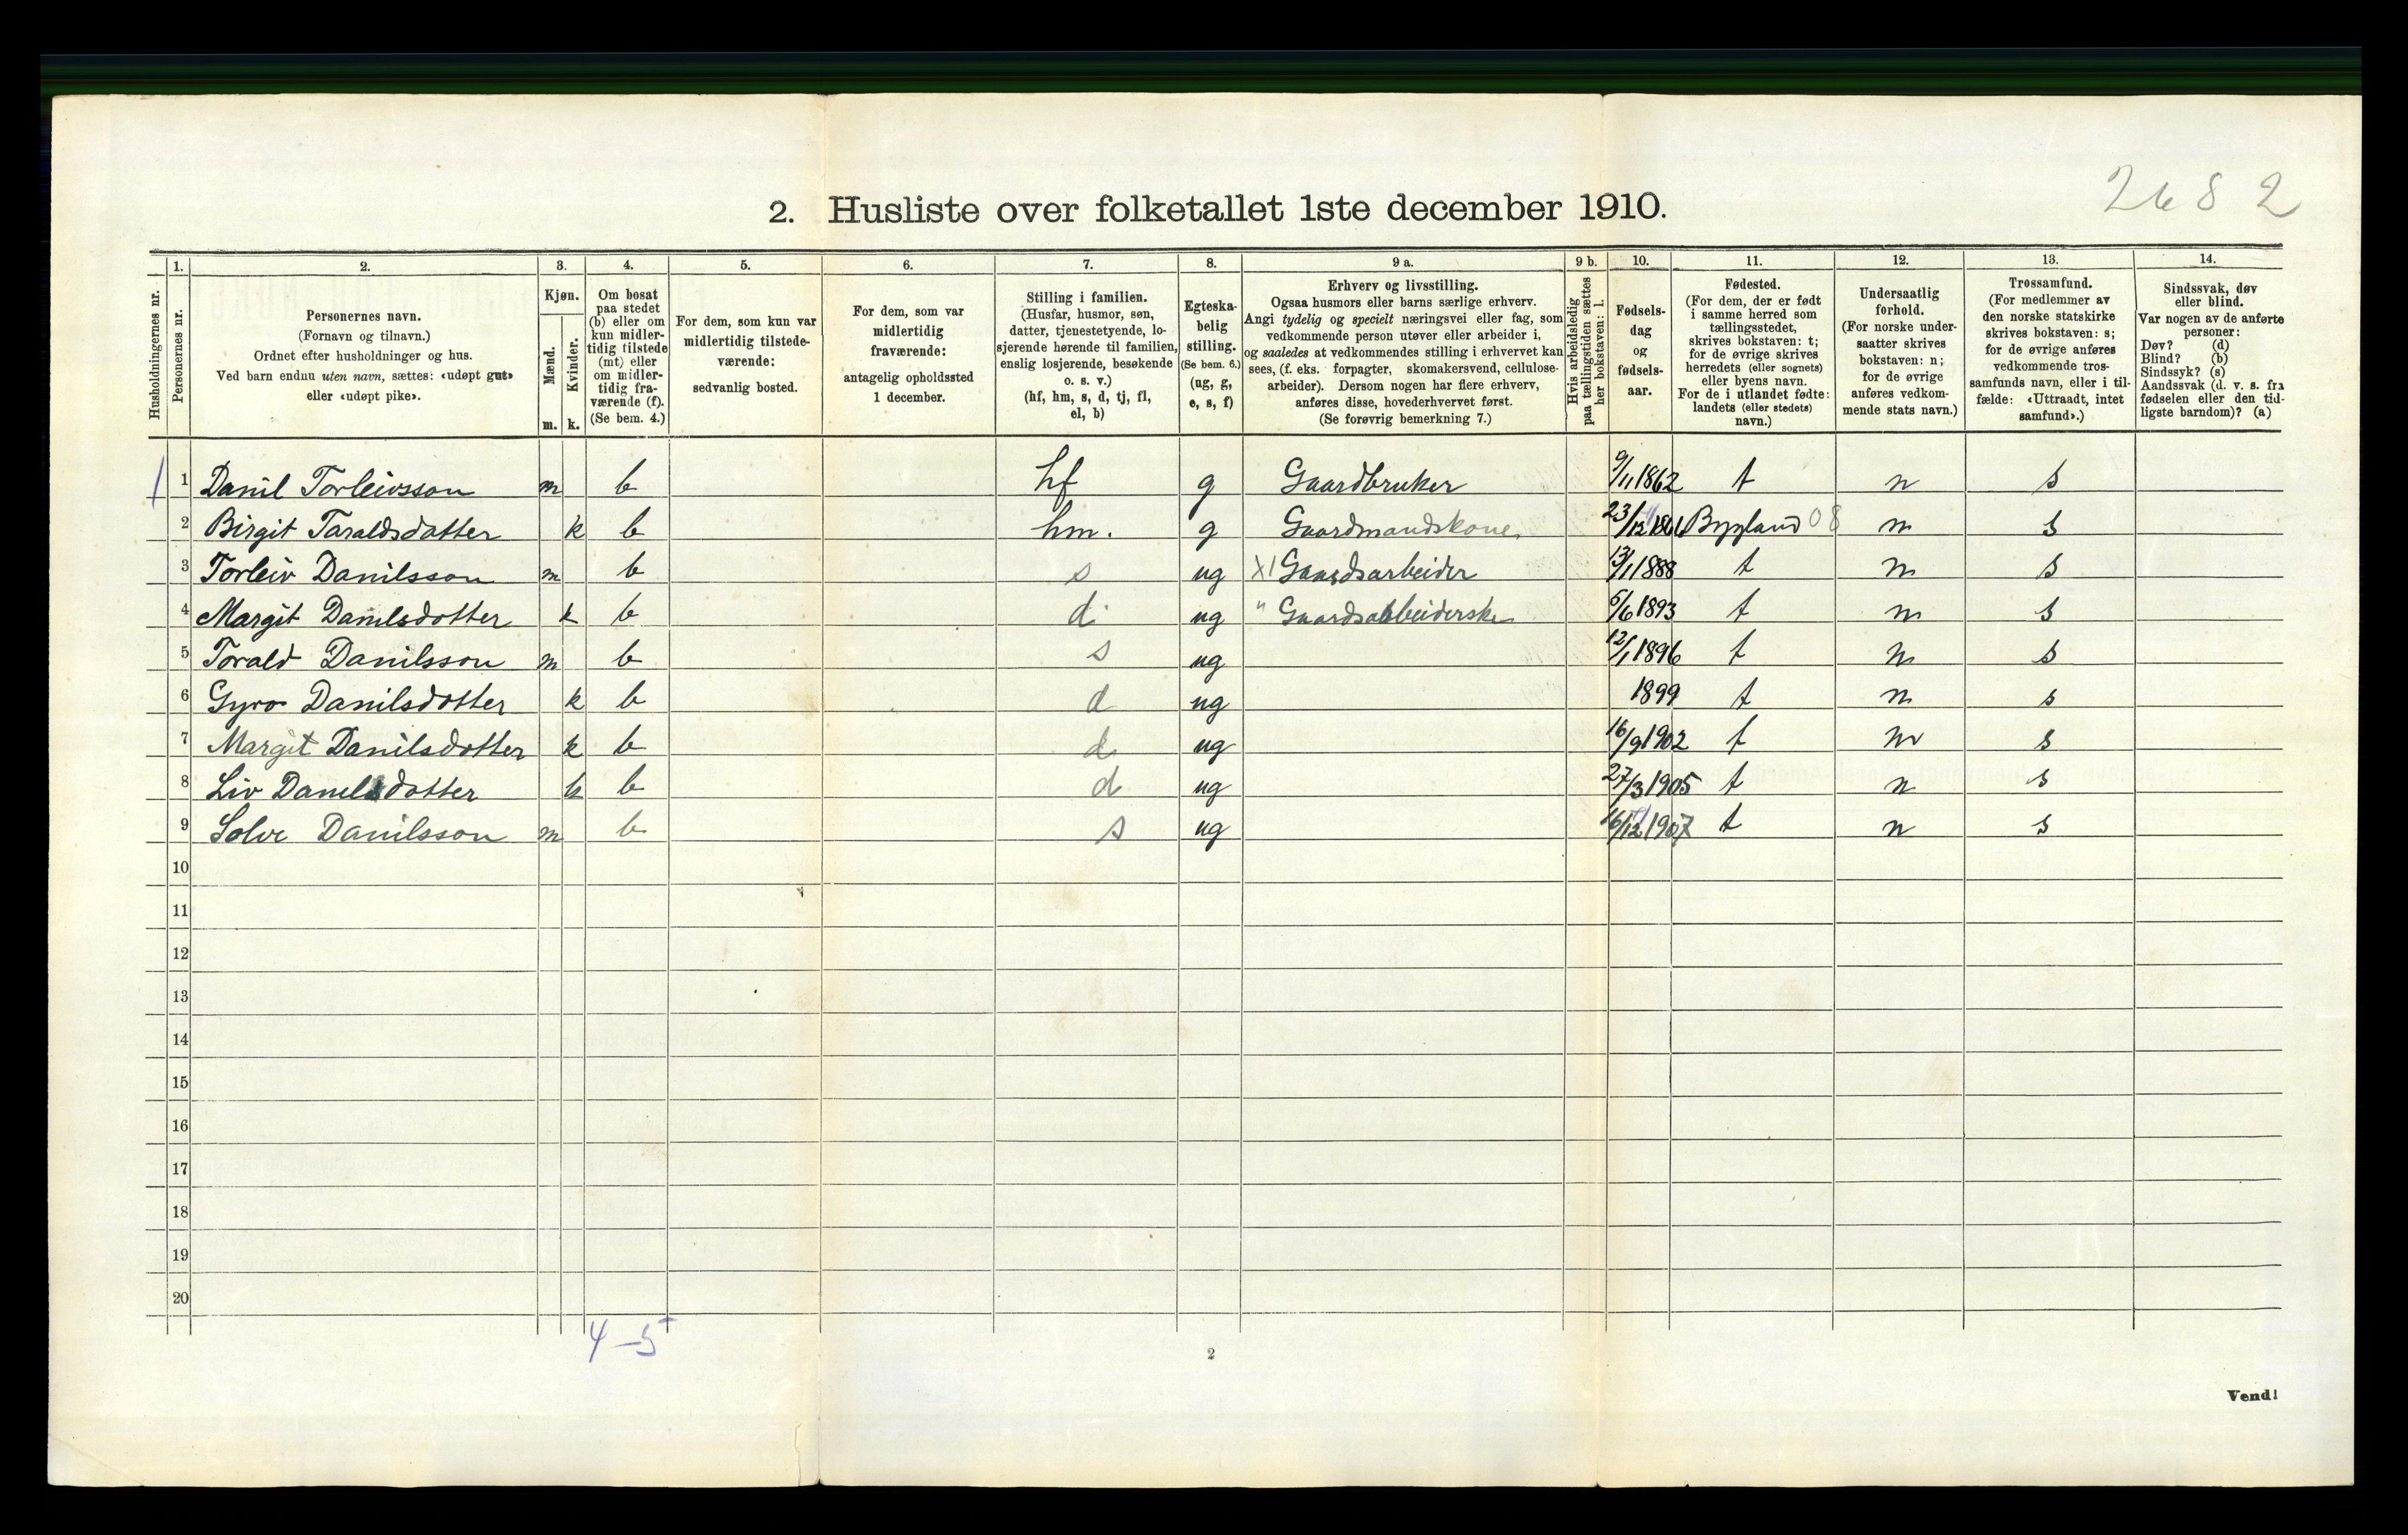 2682
2. Husliste over folketallet 1ste december 1910.
Husholdningernes nr.
1. Personernes nr.
2. Personernes navn. (Fornavn og tilnavn.) Ordnet efter husholdninger og hus. Ved barn endnu uten navn, sættes: «udøpt gut» eller «udøpt pike».
3. Kjøn. Mænd. m. Kvinder. k.
4. Om bosat paa stedet (b) eller om kun midler-tidig tilstede (mt) eller om midler-tidig fra-værende (f). (Se bem. 4.)
5. For dem, som kun var midlertidig tilstede-værende: sedvanlig bosted.
6. For dem, som var midlertidig fraværende: antagelig opholdssted 1 december.
7. Stilling i familien. (Husfar, husmor, søn, datter, tjenestetyende, lo-sjerende hørende til familien, enslig losjerende, besøkende o. s. v.) (hf, hm, s, d, tj, fl, el, b)
8. Egteska-belig stilling. (Se bem. 6.) (ug, g, e, s, f)
9 a. Erhverv og livsstilling. Ogsaa husmors eller barns særlige erhverv. Angi tydelig og specielt næringsvei eller fag, som vedkommende person utøver eller arbeider i, og saaledes at vedkommendes stilling i erhvervet kan sees, (f. eks. forpagter, skomakersvend, cellulose-arbeider). Dersom nogen har flere erhverv, anføres disse, hovederhvervet først. (Se forøvrig bemerkning 7.)
9 b. Hvis arbeidsledig paa tællingstiden sættes her bokstaven: l.
10. Fødsels-dag og fødsels-aar.
11. Fødested. (For dem, der er født i samme herred som tællingsstedet, skrives bokstaven: t; for de øvrige skrives herredets (eller sognets) eller byens navn. For de i utlandet fødte: landets (eller stedets) navn.)
12. Undersaatlig forhold. (For norske under-saatter skrives bokstaven: n; for de øvrige anføres vedkom-mende stats navn.)
13. Trossamfund. (For medlemmer av den norske statskirke skrives bokstaven: s; for de øvrige anføres vedkommende tros-samfunds navn, eller i til-fælde: «Uttraadt, intet samfund».)
14. Sindssvak, døv eller blind. Var nogen av de anførte personer: Døv? (d) Blind? (b) Sindssyk? (s) Aandssvak (d. v. s. fra fødselen eller den tid-ligste barndom)? (a)
1 1 Danil Torleivsson m b hf g Gaardbruker 9/11 1862 t n s
2 Birgit Taraldsdatter k b hm. g Gaardmandskone. 23/12 1861 Bygland 08 n s
3 Torleiv Danilsson m b s ug X1 Gaardsarbeider 13/1 1888 t n s
4 Margit Danilsdotter k b d. ug " Gaardsarbeiderske 5/6 1893 t n s
5 Torald Danilsson m b s ug 12/1 1896 t n s
6 Gyro Danilsdotter k b d ug 1899 t n s
7 Margit Danilsdotter k b d ug 16/9 1902 t n s
8 Liv Danilsdotter k b d ug 27/3 1905 t n s
9 Solve Danilsson m b s ug 16/12 1907 t n s
10
11
12
13
14
15
16
17
18
19
20
4-5
2
Vend!